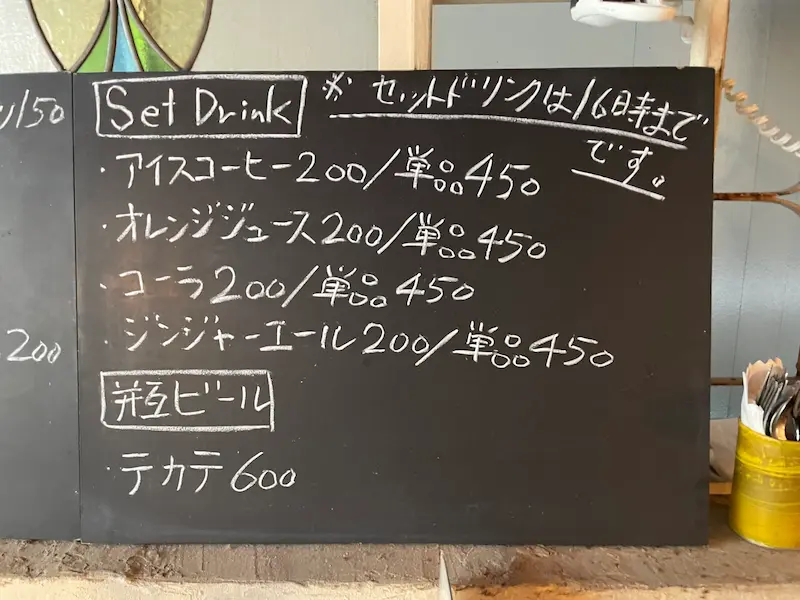 150
200
Set Drink
※ セットドリンクは16時まで
です。
・アイスコーヒー200/単品450
・オレンジジュース200/単品450
・コーラ200/単品450
・ジンジャーエール200/単品450
瓶ビール
・テカテ600